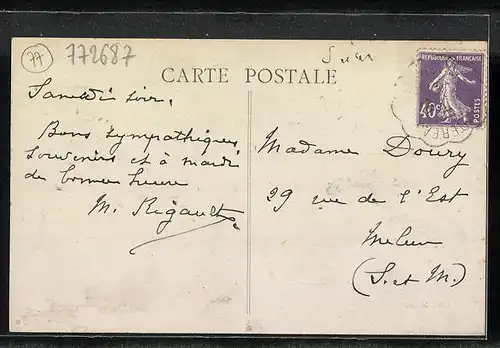 77
772687
CARTE POSTALE
RÉPUBLIQUE FRANÇAISE
40c
POSTES
Samedi soir,
Bons sympathiques
souvenirs et à mardi
de bonne heure
M. Rigault
Madame Doury
29 rue de l'Est
Melun
(S. et M.)